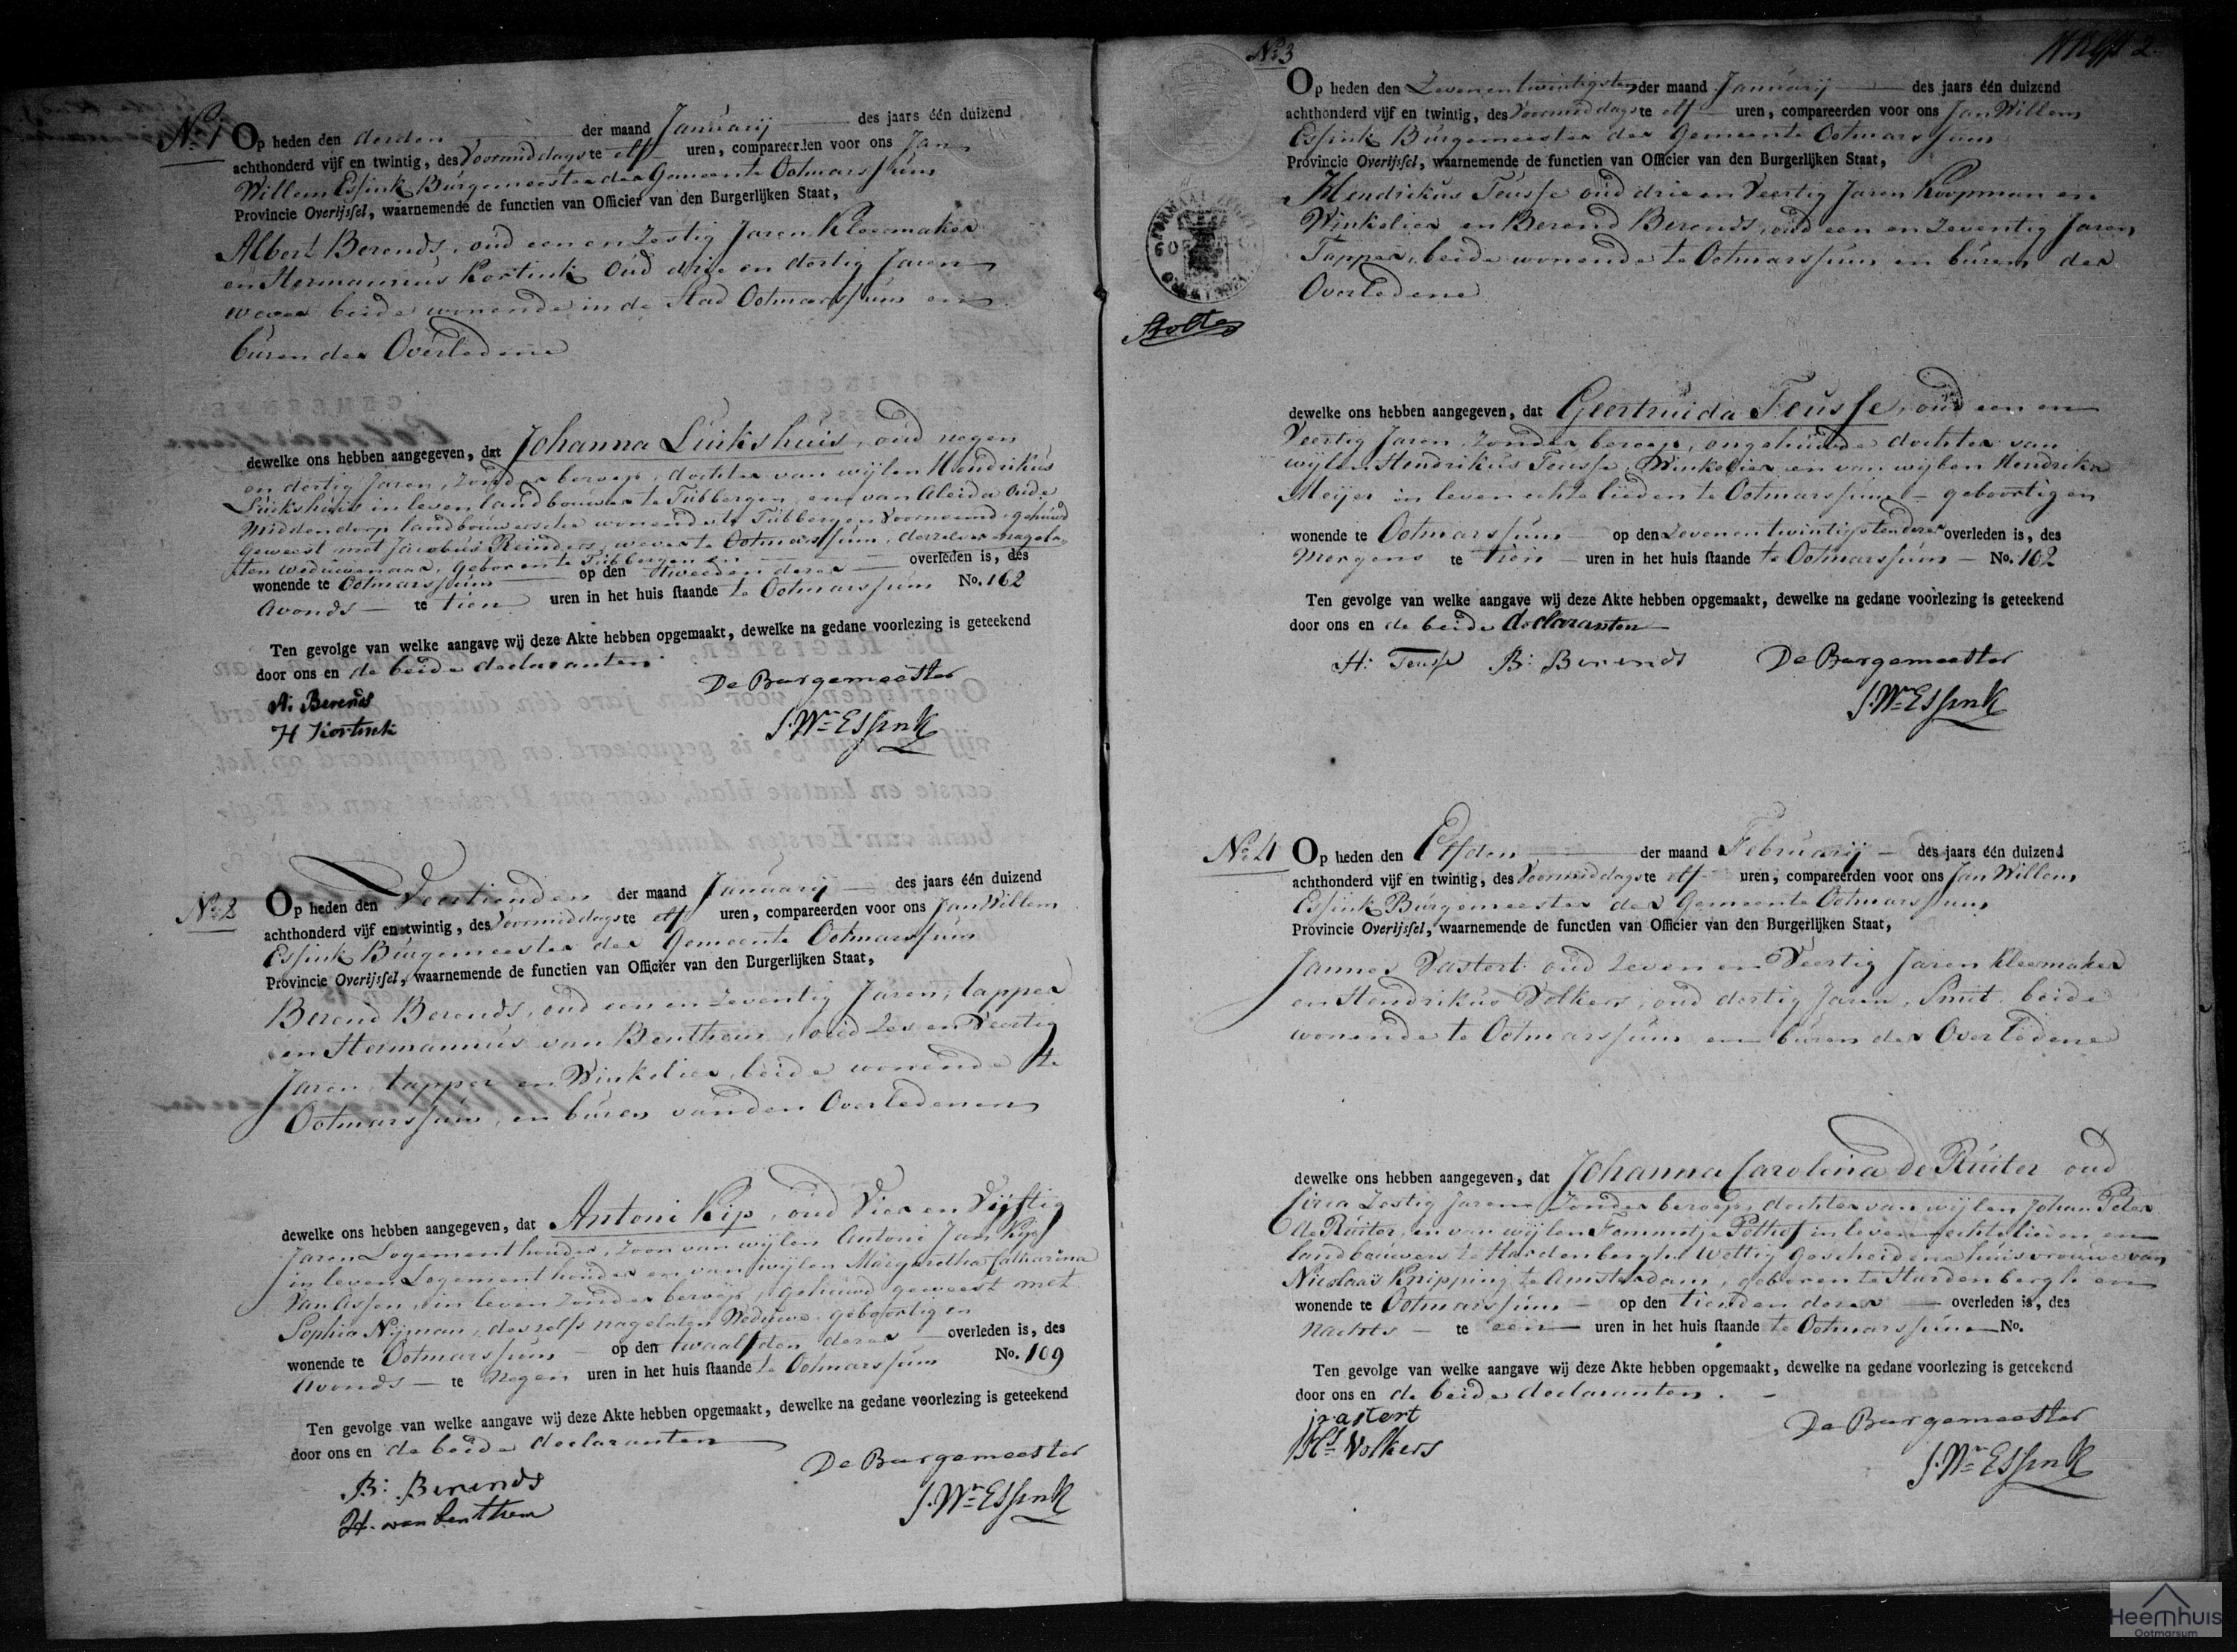 No. 1 Op heden den derden der maand Januarij des jaars één duizend
achthonderd vijf en twintig, des Voormiddags te elf uren, compareerden voor ons Jan
Willem Essink Burgemeester der Gemeente Ootmarssum
Provincie Overijssel, waarnemende de functien van Officier van den Burgerlijken Staat,
Albert Berends, oud een en Zestig Jaren, Kleermaker
en Hermannus Kortink oud drie en dertig Jaren
wever beide wonende in de Stad Ootmarssum en
buren der Overledene
dewelke ons hebben aangegeven, dat Johanna Luikshuis, oud negen
en dertig Jaren, Zonder beroep, dochter van wijlen Hendrikus
Luikshuis in leven landbouwer te Tubbergen, en van Aleida Oude
Middendorp landbouwersche wonende te Tubbergen Voornoemd, gehuwd
geweest met Jacobus Reinders, wever te Ootmarssum, derzelver nagela-
ten weduwenaar, geboren te Tubbergen en
wonende te Ootmarssum op den tweeden dezer overleden is, des
Avonds te tien uren in het huis staande te Ootmarssum No. 162
Ten gevolge van welke aangave wij deze Akte hebben opgemaakt, dewelke na gedane voorlezing is geteekend
door ons en de beide declaranten
A: Berends
H Kortink
De Burgemeester
J. Wm Essink
No. 2 Op heden den Veertienden der maand Januarij des jaars één duizend
achthonderd vijf en twintig, des Voormiddags te elf uren, compareerden voor ons Jan Willem
Essink Burgemeester der Gemeente Ootmarssum
Provincie Overijssel, waarnemende de functien van Officier van den Burgerlijken Staat,
Berend Berends, oud een en Zeventig Jaren, tapper
en Hermannus van Benthem, oud Zes en Veertig
Jaren, tapper en Winkelier, beide wonende te
Ootmarssum, en buren van den Overledenen
dewelke ons hebben aangegeven, dat Antoni Kip, oud Vier en Vijftig
Jaren Logementhouder, Zoon van wijlen Antoni Jan Kip
in leven Logementhouder en van wijlen Margaretha Catharina
Van Assen, in leven Zonder beroep, gehuwd geweest met
Sophia Nijman, deszelfs nagelaten Weduwe, geboortig en
wonende te Ootmarssum op den twaalfden dezer overleden is, des
Avonds te Negen uren in het huis staande te Ootmarssum No. 109
Ten gevolge van welke aangave wij deze Akte hebben opgemaakt, dewelke na gedane voorlezing is geteekend
door ons en de beide declaranten
B: Berends
H. van Benthem
De Burgemeester
J. Wm Essink
2
No. 3
Op heden den Zevenentwintigsten der maand Januarij des jaars één duizend
achthonderd vijf en twintig, des Voormiddags te elf uren, compareerden voor ons Jan Willem
Essink Burgemeester der Gemeente Ootmarssum
Provincie Overijssel, waarnemende de functien van Officier van den Burgerlijken Staat,
Hendrikus Teusse oud drie en Veertig Jaren Koopman en
Winkelier, en Berend Berends, oud een en Zeventig Jaren
Tapper, beide wonende te Ootmarssum en buren der
Overledene
dewelke ons hebben aangegeven, dat Geertruida Teusse, oud een en
Veertig Jaren, Zonder beroep, ongehuwde dochter van
wijlen Hendrikus Teusse, Winkelier en van wijlen Hendrika
Meijer in leven echte lieden te Ootmarssum - geboortig en
wonende te Ootmarssum op den Zevenentwintigsten dezer overleden is, des
Morgens te tien uren in het huis staande te Ootmarssum No. 162
Ten gevolge van welke aangave wij deze Akte hebben opgemaakt, dewelke na gedane voorlezing is geteekend
door ons en de beide declaranten
H: Teusse B: Berends De Burgemeester
J. Wm Essink
No. 4 Op heden den Elfden der maand Februarij des jaars één duizend
achthonderd vijf en twintig, des Voormiddags te elf uren, compareerden voor ons Jan Willem
Essink Burgemeester der Gemeente Ootmarssum
Provincie Overijssel, waarnemende de functien van Officier van den Burgerlijken Staat,
Jannes Vastert oud Zeven en Veertig Jaren Kleermaker
en Hendrikus Volkers, oud dertig Jaren, Smit beide
wonende te Ootmarssum en buren der Overledene
dewelke ons hebben aangegeven, dat Johanna Carolina de Ruiter oud
Circa Zestig Jaren Zonder beroep, dochter van wijlen Johan Peter
de Ruiter, en van wijlen Femmetje Pothof in leven echtelieden en
landbouwers te Hardenbergh Wettig Gescheidene huisvrouwe van
Nicolaas Knipping te Amsterdam, geboren te Hardenbergh en
wonende te Ootmarssum op den tienden dezer overleden is, des
Nachts te een uren in het huis staande te Ootmarssum No.
Ten gevolge van welke aangave wij deze Akte hebben opgemaakt, dewelke na gedane voorlezing is geteekend
door ons en de beide declaranten.
J Vastert
Hs Volkers
De Burgemeester
J. Wm Essink
Heemhuis
Ootmarsum